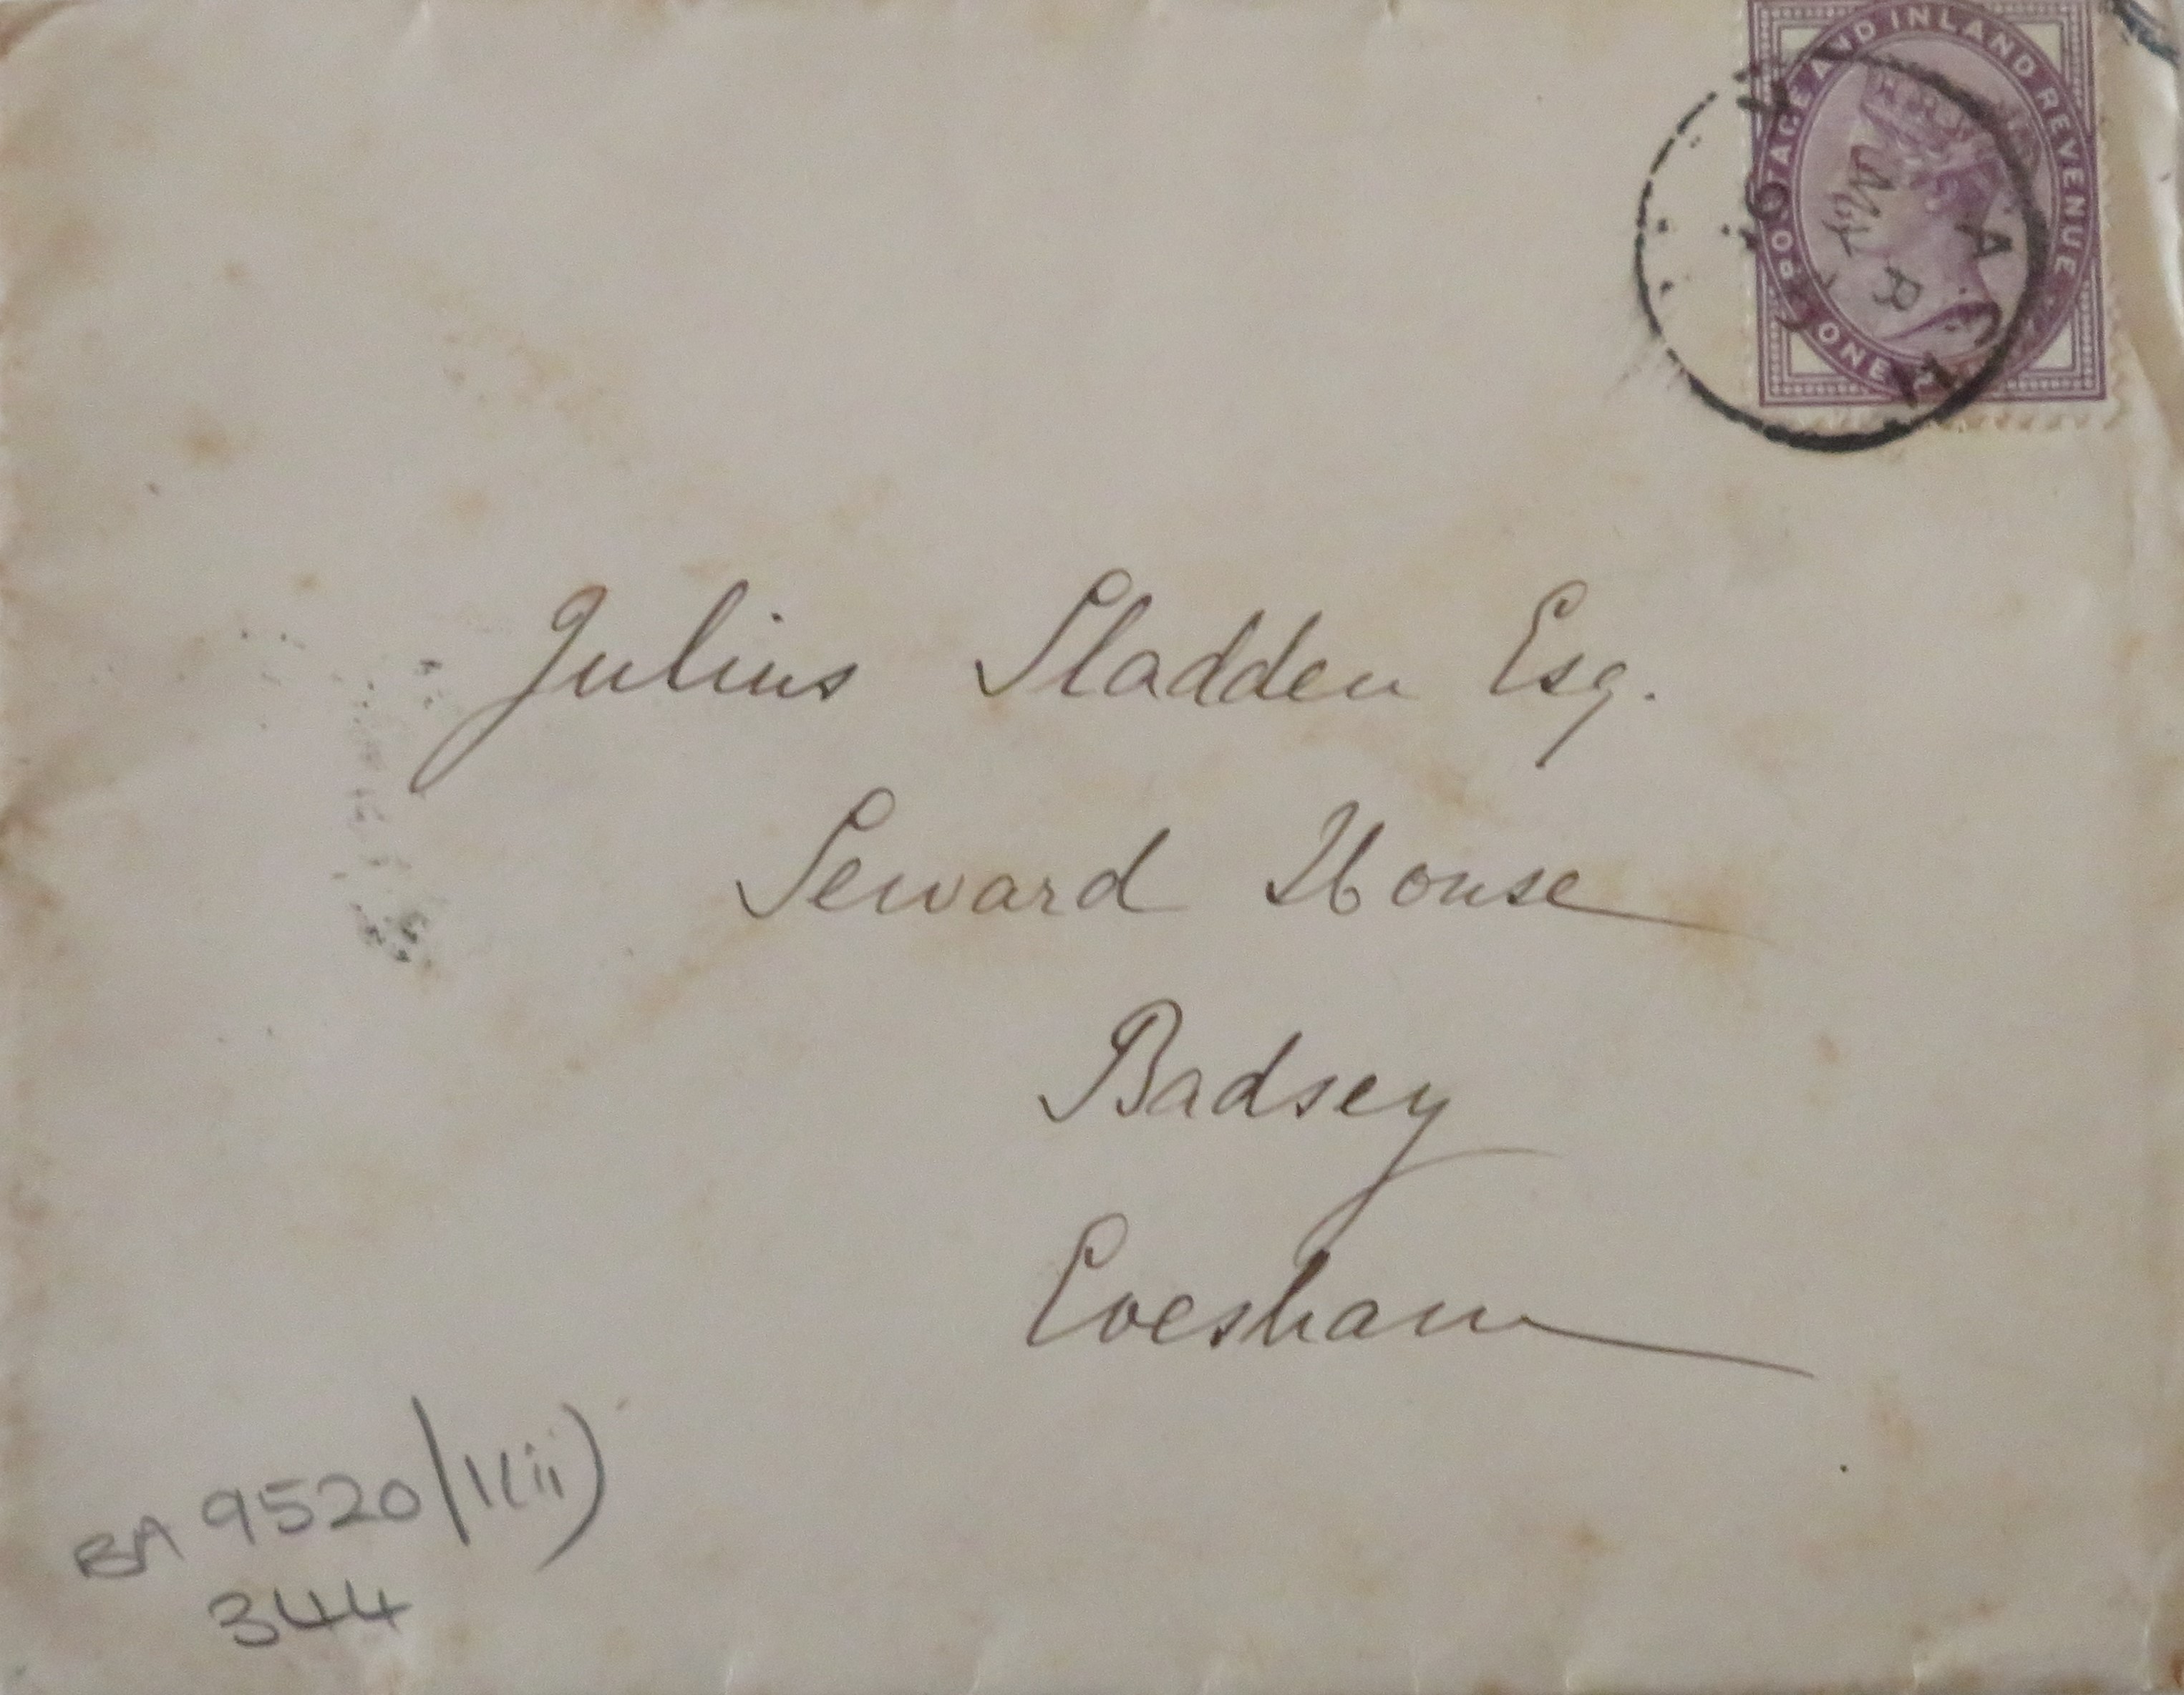 POSTAGE AND INLAND REVENUE
ONE
Julius Sladden Esq.
Seward House
Badsey
Evesham
BA 9520/1(ii)
344